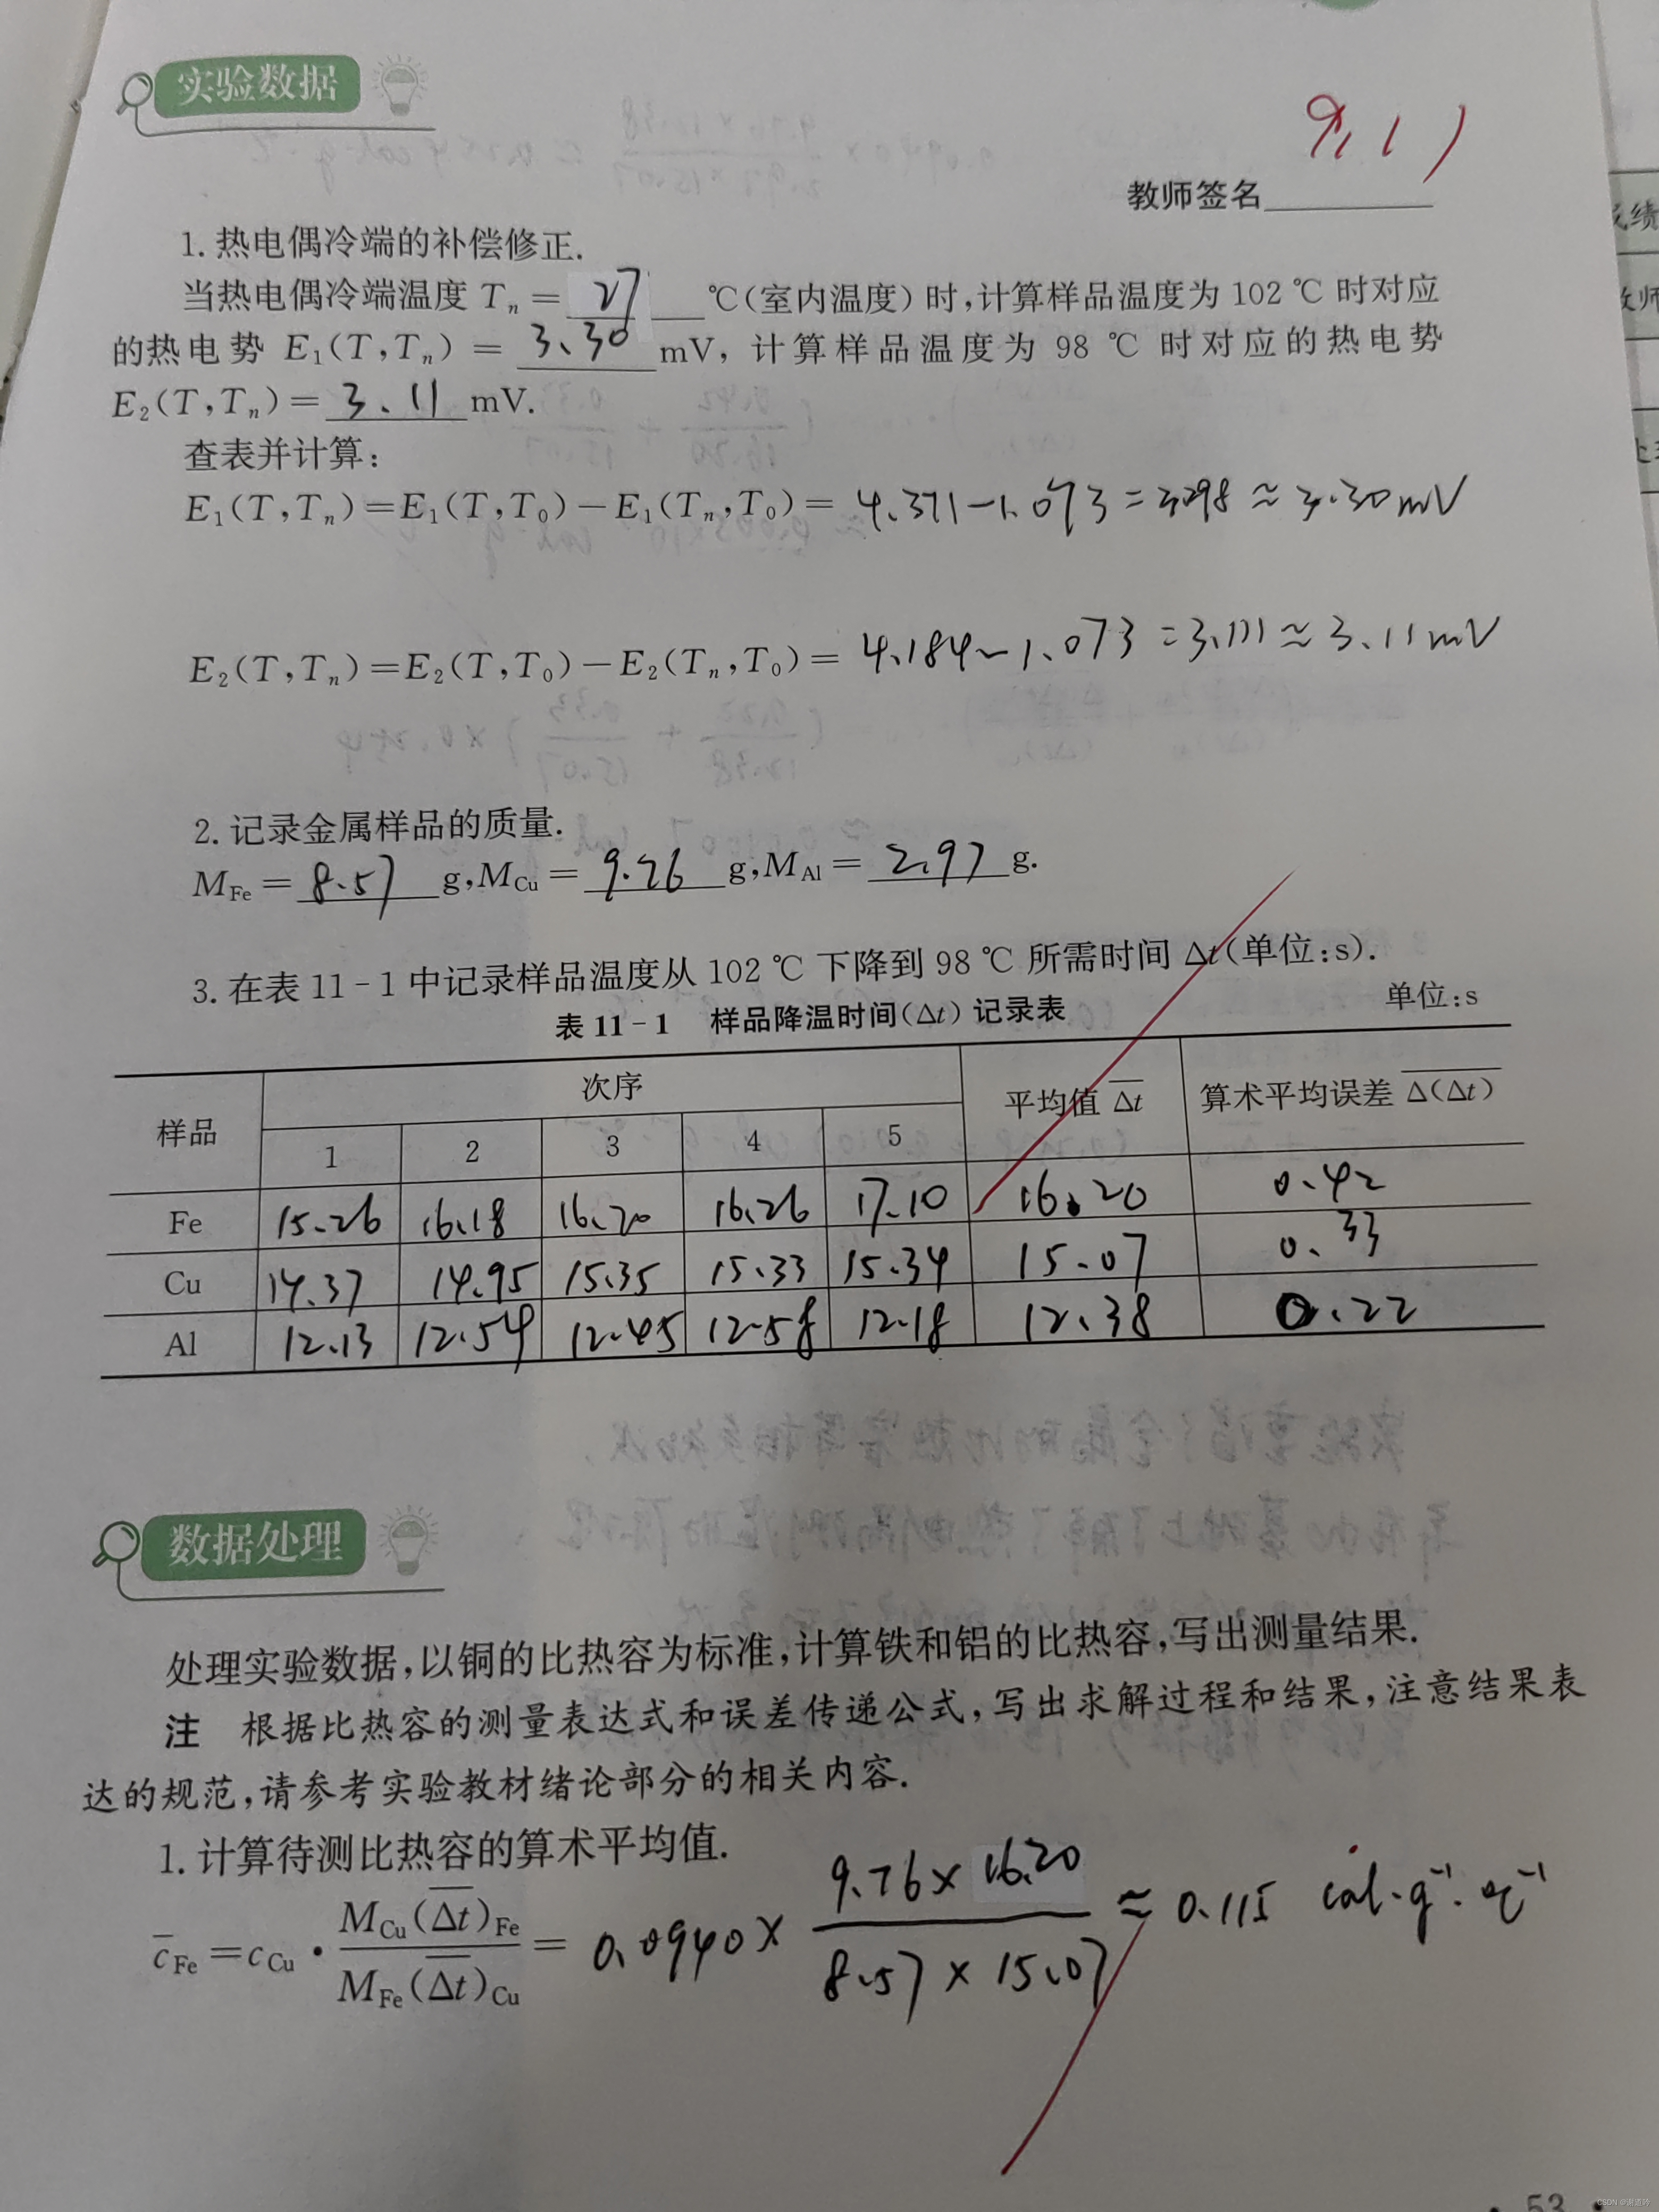 实验数据
9.11
教师签名
1. 热电偶冷端的补偿修正.
当热电偶冷端温度 Tₙ = 27 ℃(室内温度) 时,计算样品温度为 102 ℃ 时对应
的热电势 E₁(T,Tₙ) = 3.30 mV, 计算样品温度为 98 ℃ 时对应的热电势
E₂(T,Tₙ) = 3.11 mV.
查表并计算:
E₁(T,Tₙ)=E₁(T,T₀)-E₁(Tₙ,T₀)= 4.371-1.073=3.298≈3.30mV
E₂(T,Tₙ)=E₂(T,T₀)-E₂(Tₙ,T₀)= 4.184-1.073=3.111≈3.11mV
2. 记录金属样品的质量.
M_Fe = 8.57 g,M_Cu = 9.76 g,M_Al = 2.97 g.
3. 在表 11-1 中记录样品温度从 102 ℃ 下降到 98 ℃ 所需时间 Δt(单位:s).
表 11-1 样品降温时间(Δt)记录表 单位:s
样品 次序 平均值 Δt̅ 算术平均误差 Δ(Δt)̅
1 2 3 4 5
Fe 15.26 16.18 16.20 16.26 17.10 16.20 0.42
Cu 14.37 14.95 15.35 15.33 15.34 15.07 0.33
Al 12.13 12.54 12.45 12.58 12.18 12.38 0.22
数据处理
处理实验数据,以铜的比热容为标准,计算铁和铝的比热容,写出测量结果.
注 根据比热容的测量表达式和误差传递公式,写出求解过程和结果,注意结果表
达的规范,请参考实验教材绪论部分的相关内容.
1. 计算待测比热容的算术平均值.
c̅_Fe = c_Cu · M_Cu(Δt̅)_Fe / M_Fe(Δt̅)_Cu = 0.0940× 9.76×16.20 / 8.57×15.07 ≈ 0.115 cal·g⁻¹·℃⁻¹
· 53 ·
CSDN @谢道吟